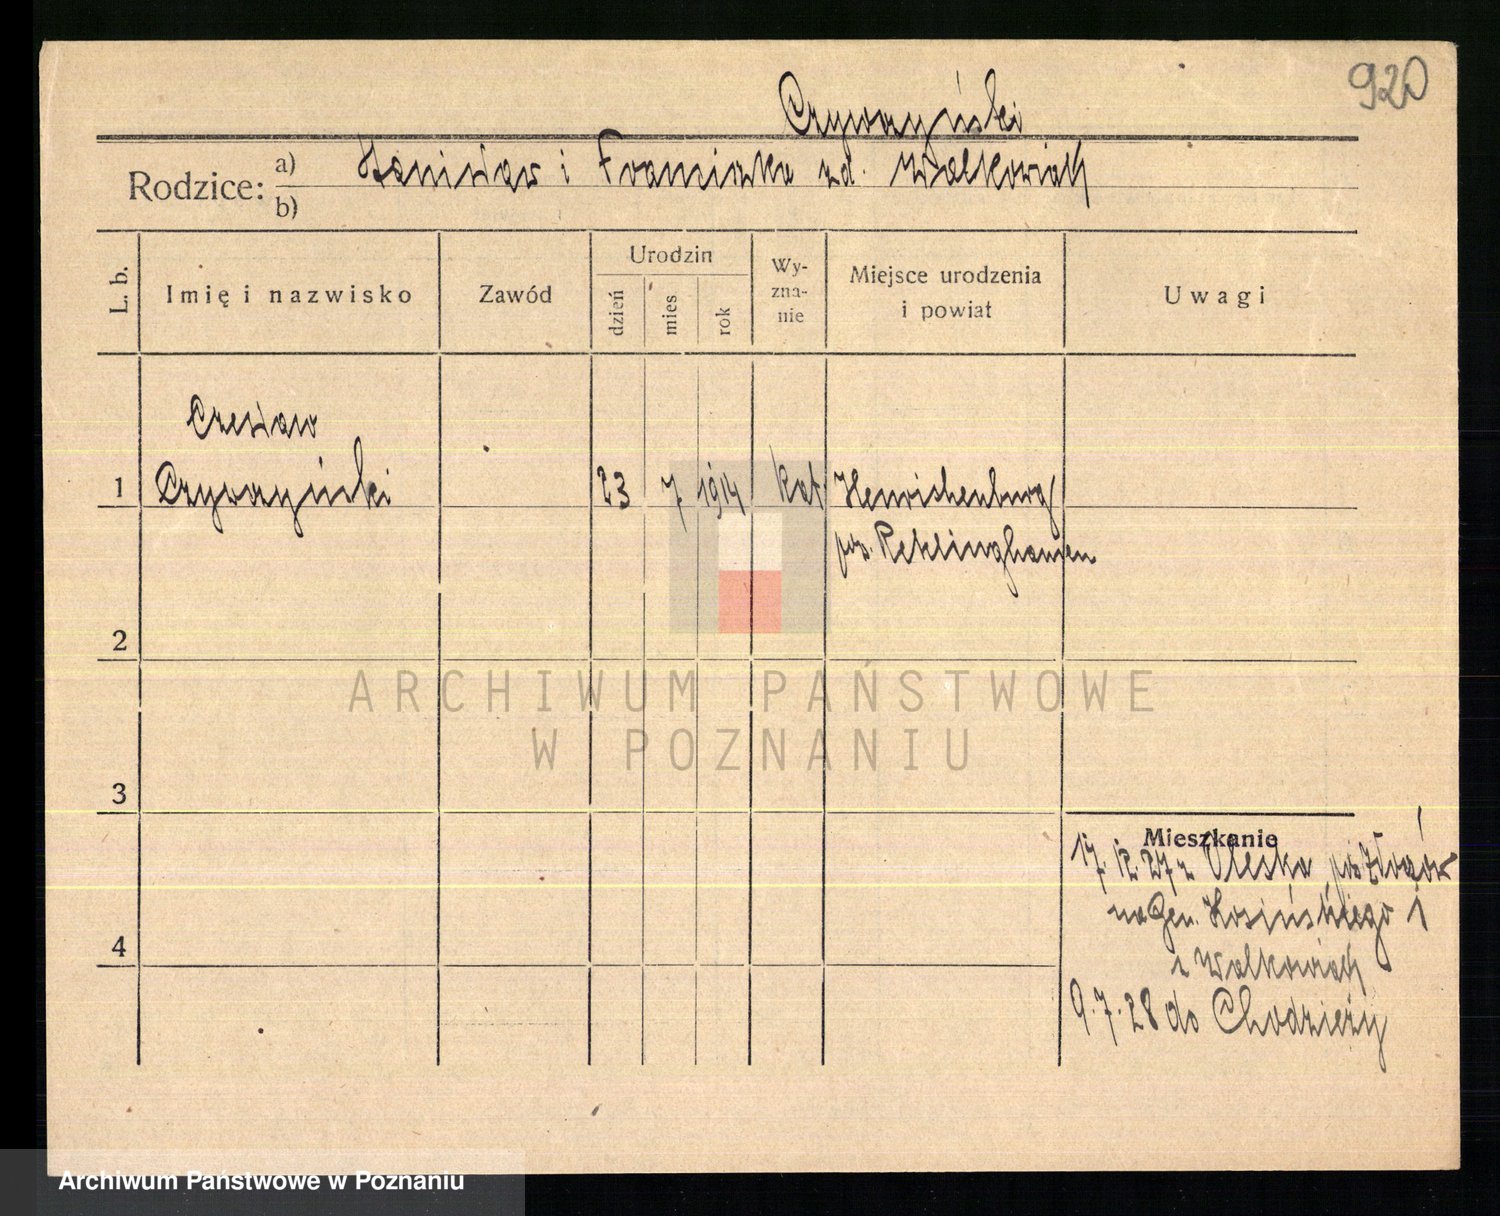 920
Czywczyński
Rodzice: a) Stanisław i Franciszka zd. Walkowiak
b)
L. b.
Imię i nazwisko
Zawód
Urodzin
dzień
mies
rok
Wy-
zna-
nie
Miejsce urodzenia
i powiat
Uwagi
Czesław
1 Czywczyński 23 7 1914 kat. Henrichenburg
pow. Reklinghausen
2
3
4
Mieszkanie
17.12.27 z
na Gen. Kosińskiego 1
z Walkowiak
9.7.28 do Chodzieży
ARCHIWUM PAŃSTWOWE
W POZNANIU
Archiwum Państwowe w Poznaniu